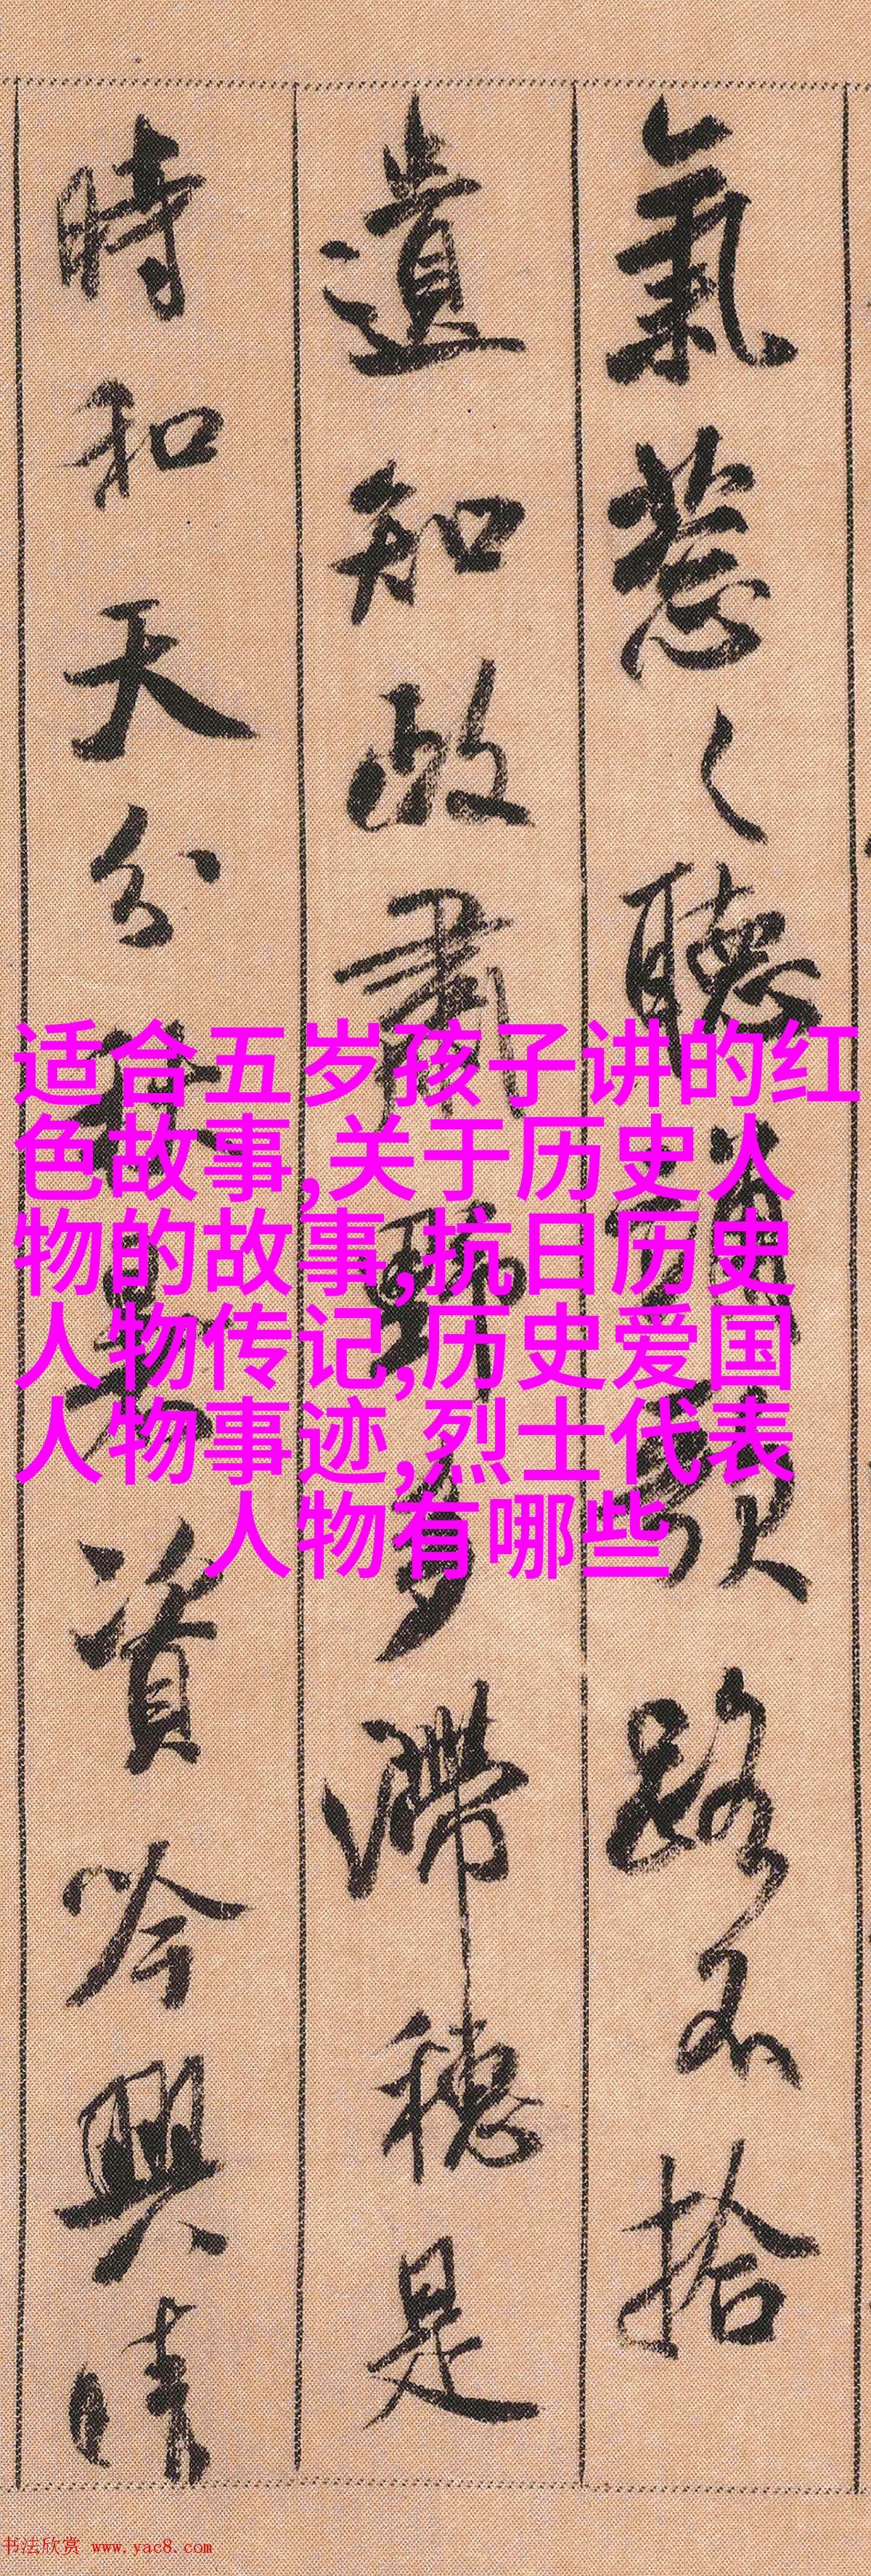 氣葱〻聽謳歌路不拾
遺知政肅野多滯穗是
時和天分
資吟興晴
适合五岁孩子讲的红
色故事,关于历史人
物的故事,抗日历史
人物传记,历史爱国
人物事迹,烈士代表
人物有哪些
书法欣赏 www.yac8.com